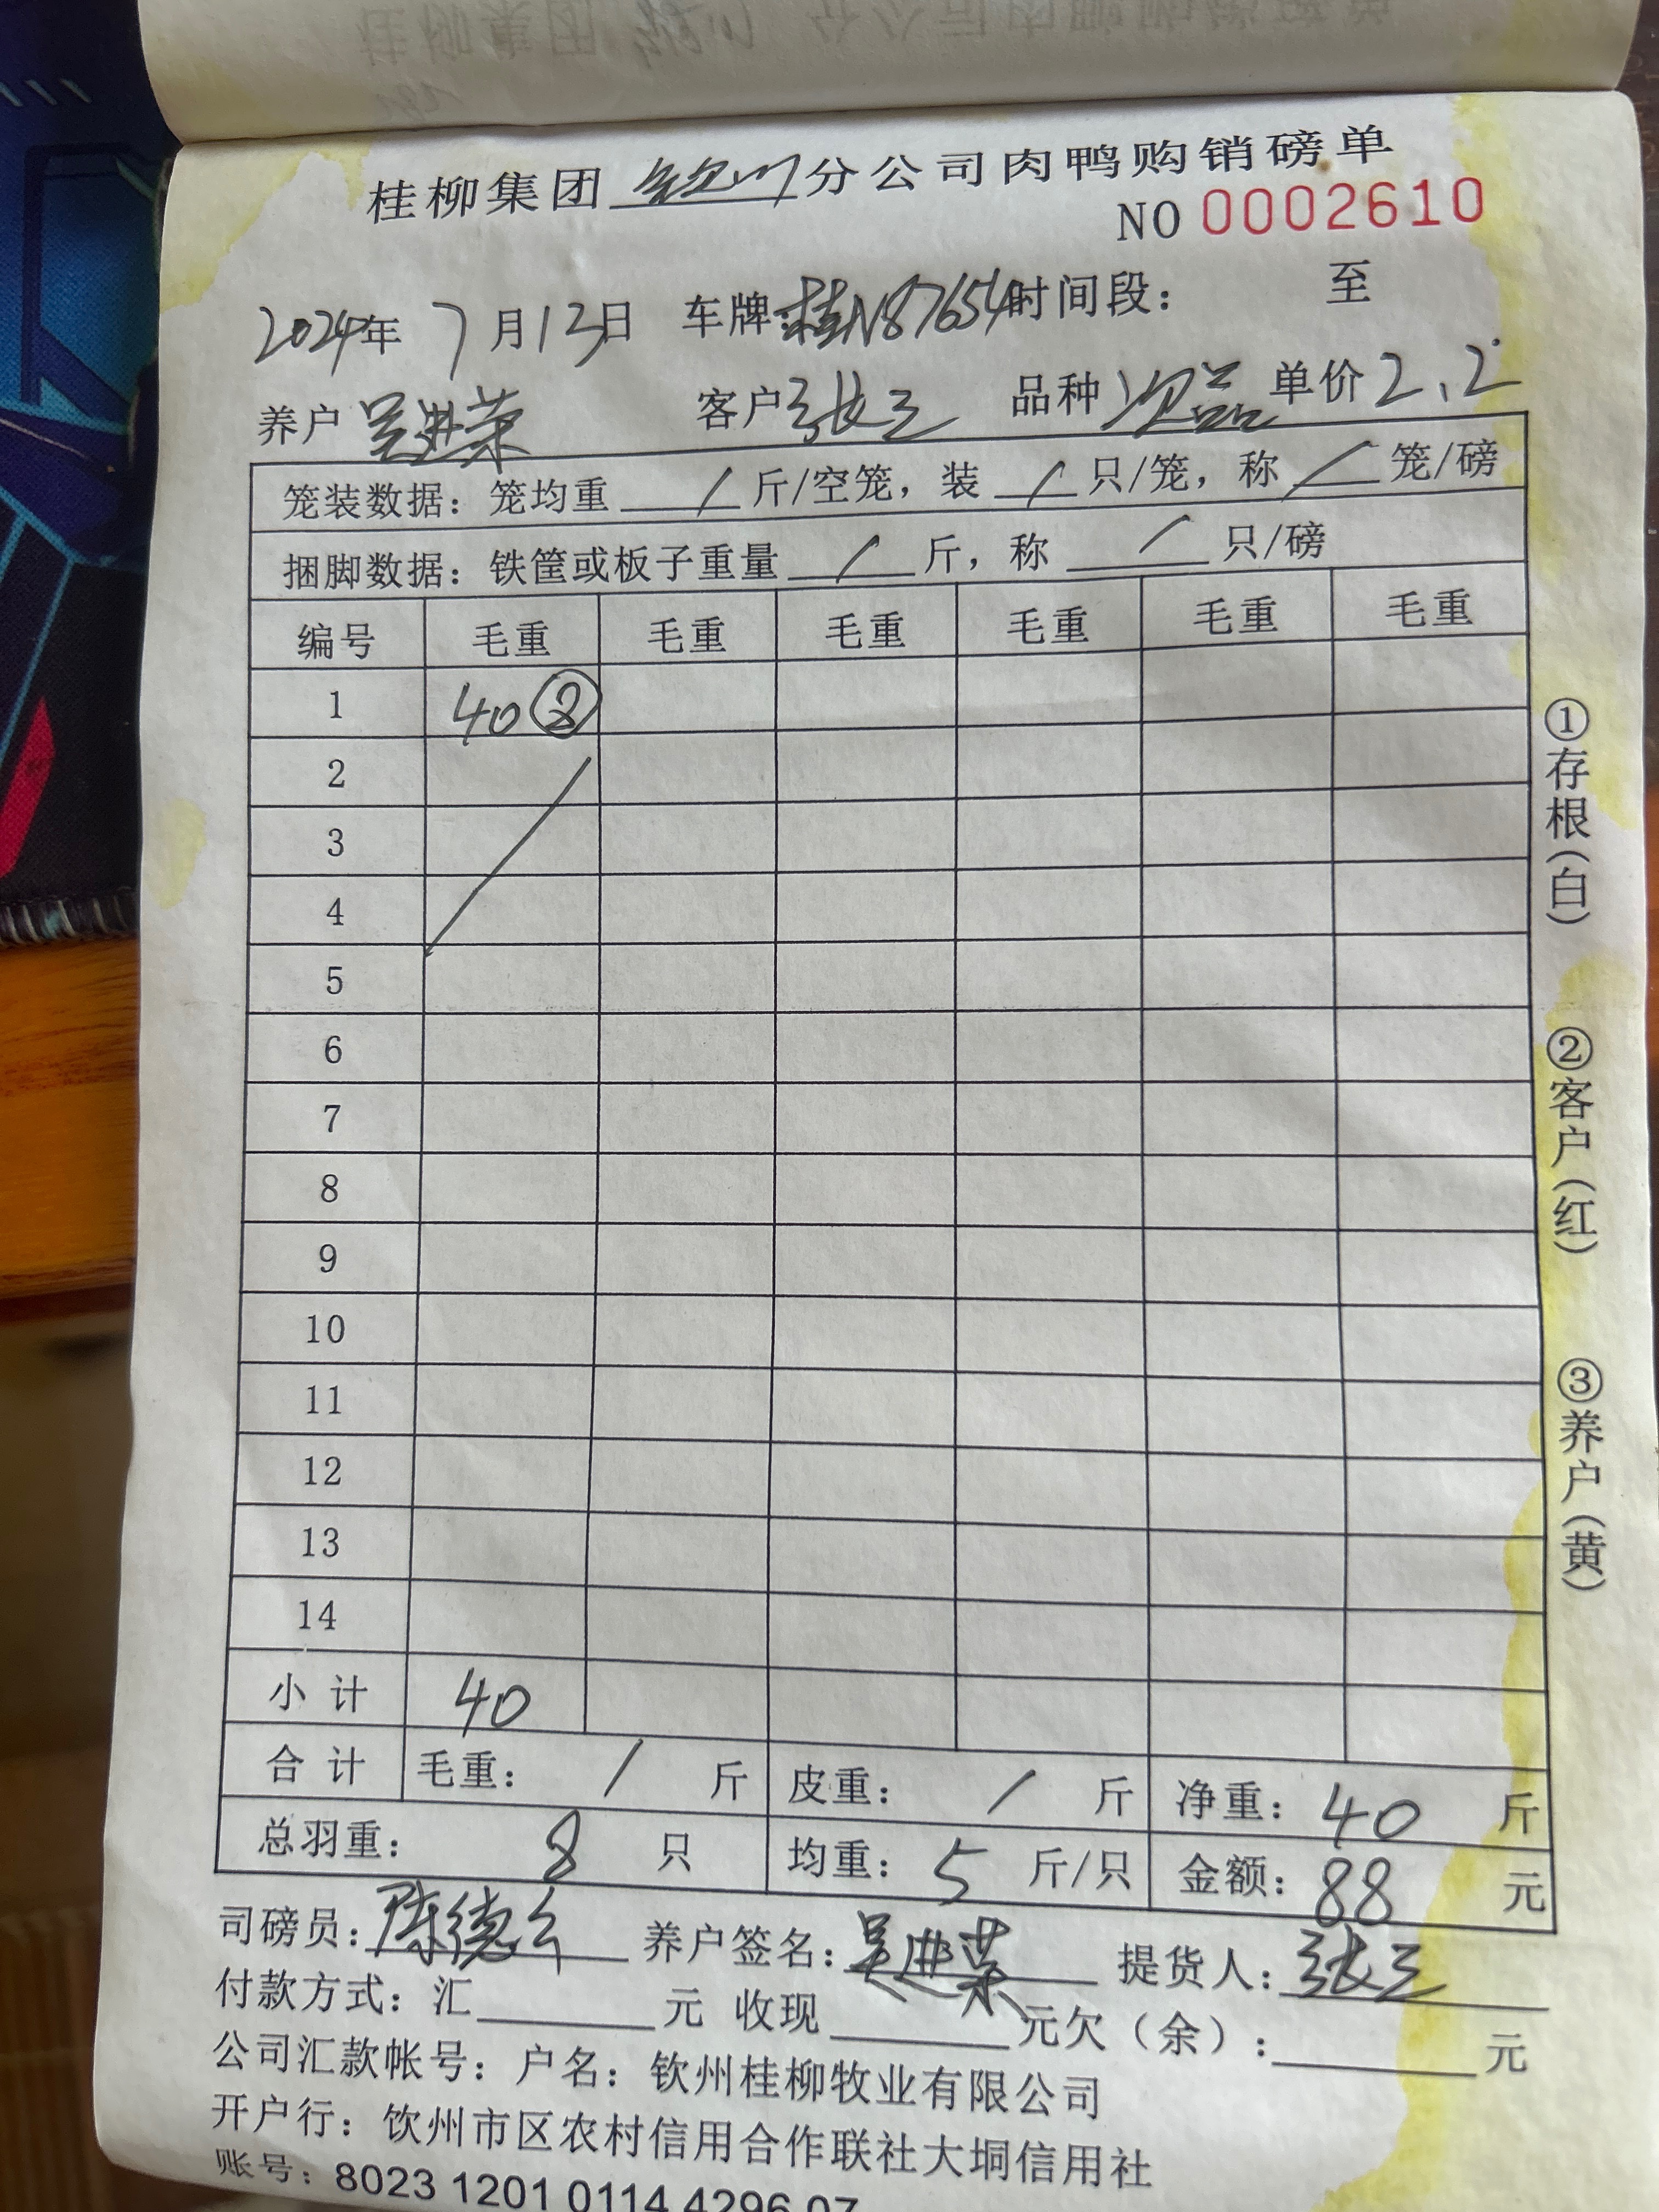 桂柳集团 钦州 分公司肉鸭购销磅单
NO 0002610
2024年 7月13日 车牌:桂N87654 时间段: 至
养户 吴进荣 客户 张三 品种 次品 单价 2.2
笼装数据:笼均重 / 斤/空笼,装 / 只/笼,称 / 笼/磅
捆脚数据:铁筐或板子重量 / 斤,称 / 只/磅
编号 毛重 毛重 毛重 毛重 毛重 毛重
1 40 ⑧
2
3
4
5
6
7
8
9
10
11
12
13
14
小计 40
合计 毛重: / 斤 皮重: / 斤 净重: 40 斤
总羽重: 8 只 均重: 5 斤/只 金额: 88 元
司磅员:陈德 养户签名:吴进荣 提货人:张三
付款方式:汇 元 收现 元欠(余): 元
公司汇款帐号:户名:钦州桂柳牧业有限公司
开户行:钦州市区农村信用合作联社大垌信用社
账号:8023 1201 0114 4296 07
①存根(白)
②客户(红)
③养户(黄)